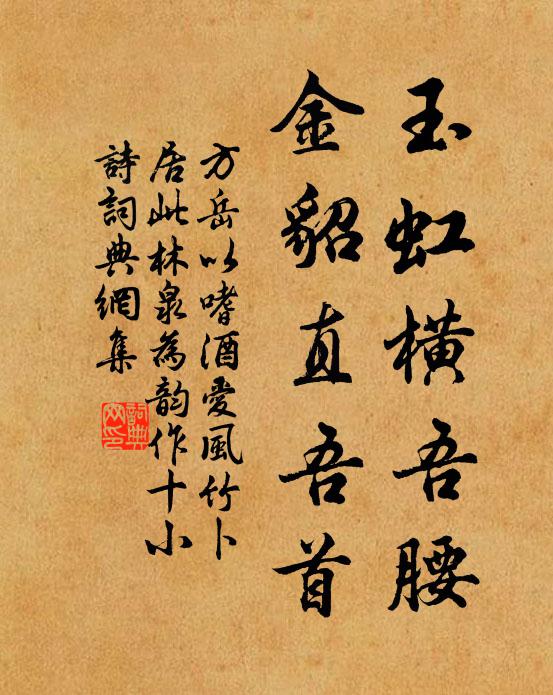 玉虹橫吾腰
金貂直吾首
方岳以嗜酒愛風竹卜
居此林泉為韵作十小
詩詞典網集
詞典
网印